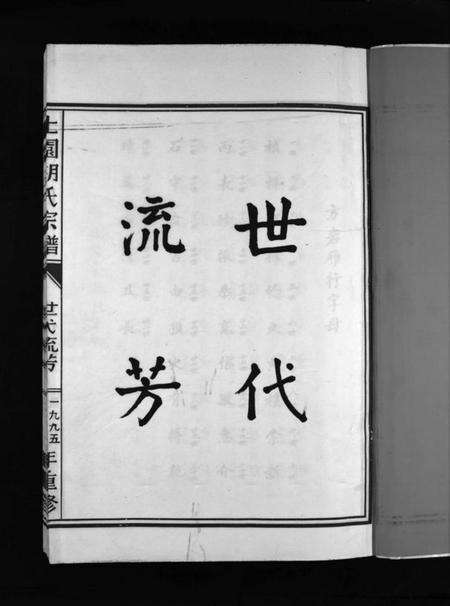 世代
流芳
園胡氏宗譜
世代流芳
一九九五年重修